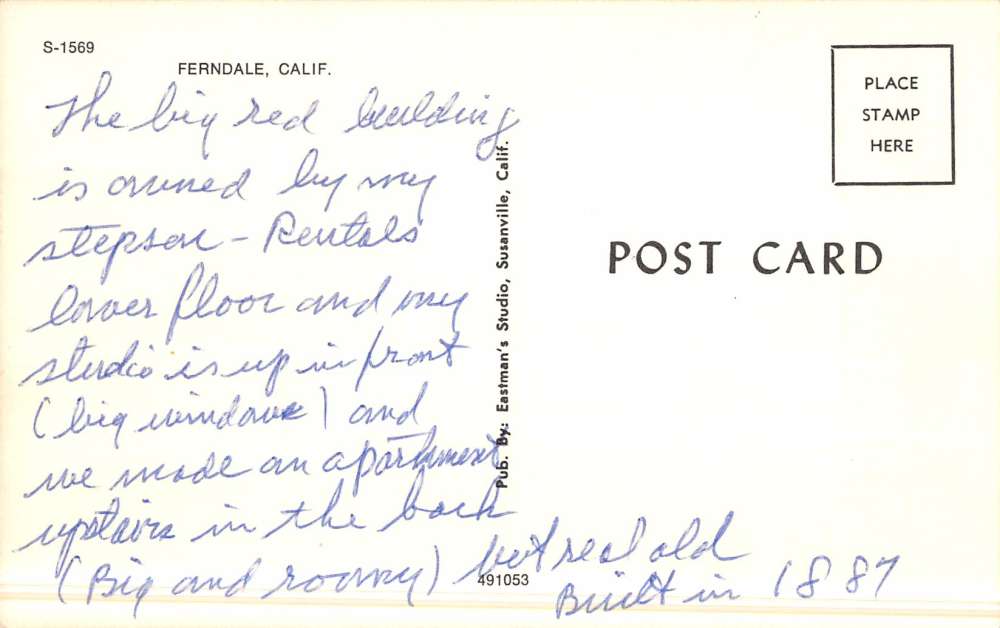 S-1569
FERNDALE, CALIF.
The big red building
is owned by my
stepson - Rentals
lower floor and my
studio is up in front
(big windows) and
we made an apartment
upstairs in the back
(Big and roomy) but real old
Built in 1887
Pub. By: Eastman's Studio, Susanville, Calif.
491053
PLACE
STAMP
HERE
POST CARD